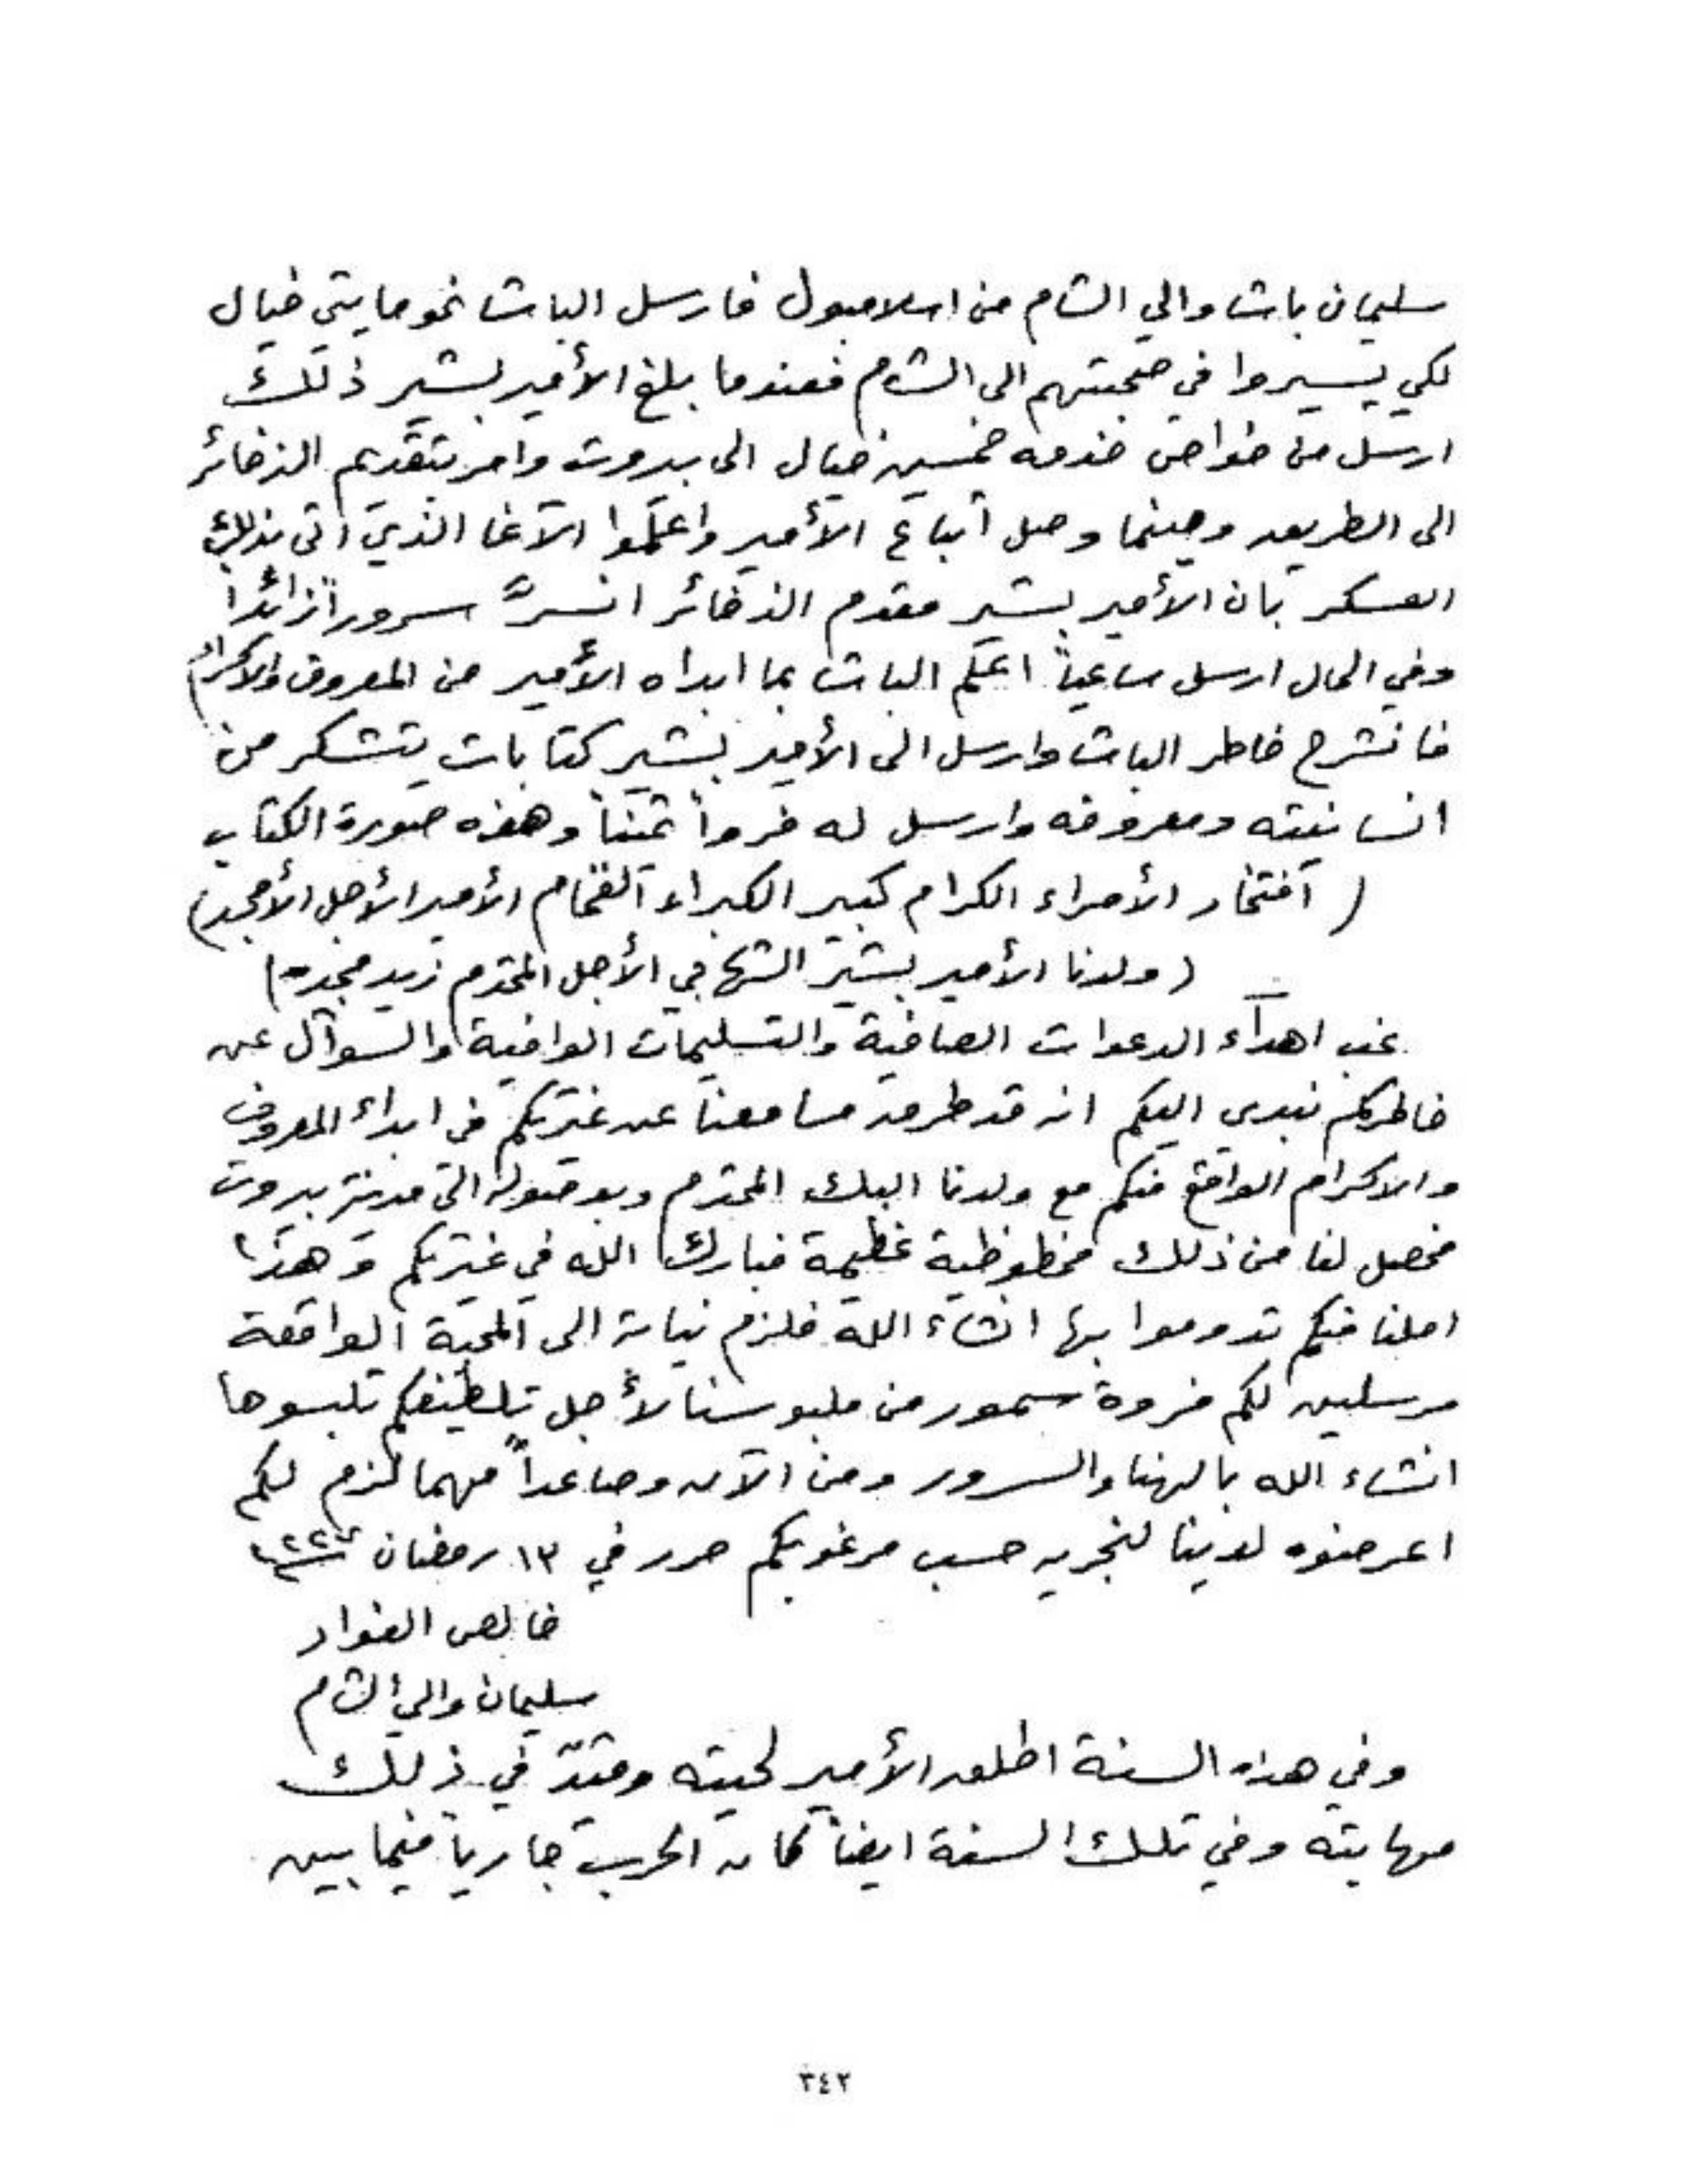 سليمان باشا والي الشام من اسلامبول فارسل الباشا نحو مايتي خيال
لكي يسيروا في صحبتهم الى الشام فعندما بلغ الأمير بشير ذلك
ارسل من خواص خدمه خمسين خيال الى بيروت وامر بتقديم الذخائر
الى الطريق وحينما وصل أتباع الأمير واعلموا الآغا الذي اتى بذلك
العسكر بان الأمير بشير مقدم الذخائر انسرّ سروراً زائداً
وفي الحال ارسل ساعياً اعلم الباشا بما ابداه الأمير من المعروف والاكرام
فانشرح خاطر الباشا وارسل الى الأمير بشير كتابات يتشكر من
انسانيته ومعروفه وارسل له فرواً ثميناً وهذه صورة الكتاب
( افتخار الأمراء الكرام كبير الكبراء الفخام الأمير الأجل الأمجد)
(ولدنا الأمير بشير الشهابي الأجل المحترم زيد مجده)
غب اهدآء الدعوات الصافية والتسليمات الوافية والسوآل عن
خاطركم نبدي اليكم انه قد طرق مسامعنا عن غيرتكم في ابداء المعروف
والاكرام الواقع منكم مع ولدنا البك المحترم وبوصوله الى مدينة بيروت
فحصل لنا من ذلك محظوظية عظيمة فبارك الله في غيرتكم وهذا
املنا منكم تدوموا بها انشاء الله فلزم نباته الى المحبة الواقعة
مرسلين لكم فروة سمور من ملبوسنا لأجل تلطيفكم تلبسوها
انشاء الله بالهنا والسرور ومن الآن وصاعداً مهما لزم لكم
اعرضوه لدينا لنجريه حسب مرغوبكم حرر في ١٣ رمضان
خالص الفواد
سليمان والي الشام
وفي هذه السنة اطلق الأمير لحيته في ذلك
مهابته وفي تلك السنة ايضاً كان الحرب جارياً فيما بين
٣٤٢